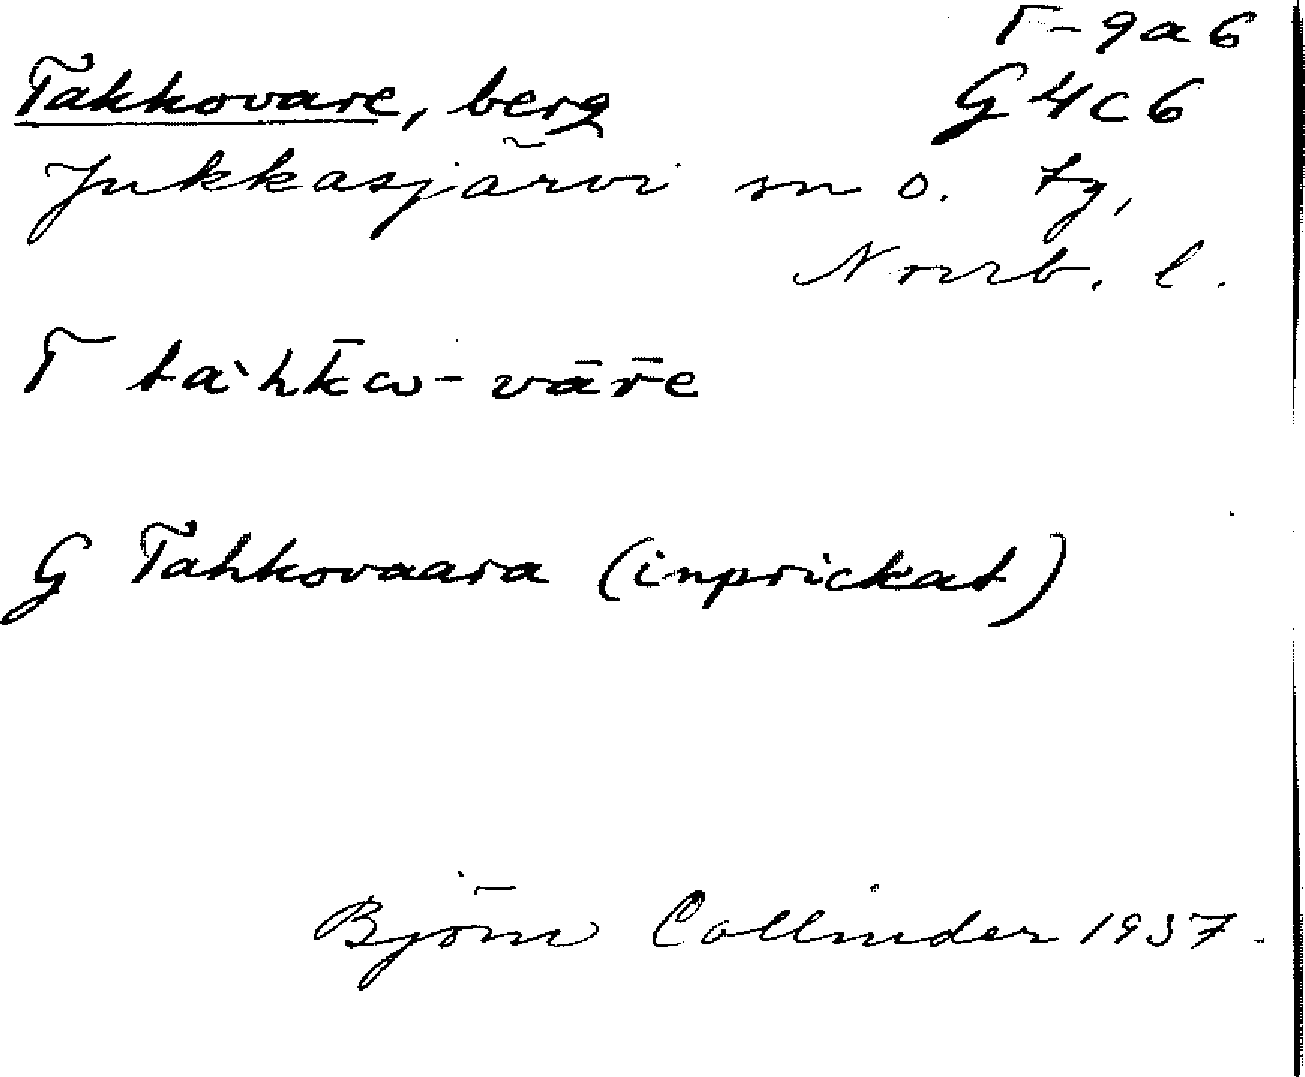 T-9a6
Takkovare, berg G4c6
Jukkasjärvi sn o. tg,
Norrb. l.
T tàhk̄ω-vār̄e
G Tahkovaara (inprickat)
Björn Collinder 1937.